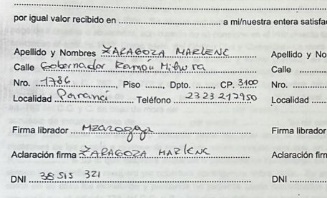 por igual valor recibido en .................... a mi/nuestra entera satisfa
Apellido y Nombres ZARAGOZA MARLENE
Apellido y No
Calle Gobernador Ramón Mihura
Calle
Nro. 1786 Piso ...... Dpto. ........ CP. 3100
Nro.
Localidad Paraná Teléfono 2323 217950
Localidad
Firma librador
Firma librador
Aclaración firma ZARAGOZA MARLENE
Aclaración firm
DNI 38 515 321
DNI